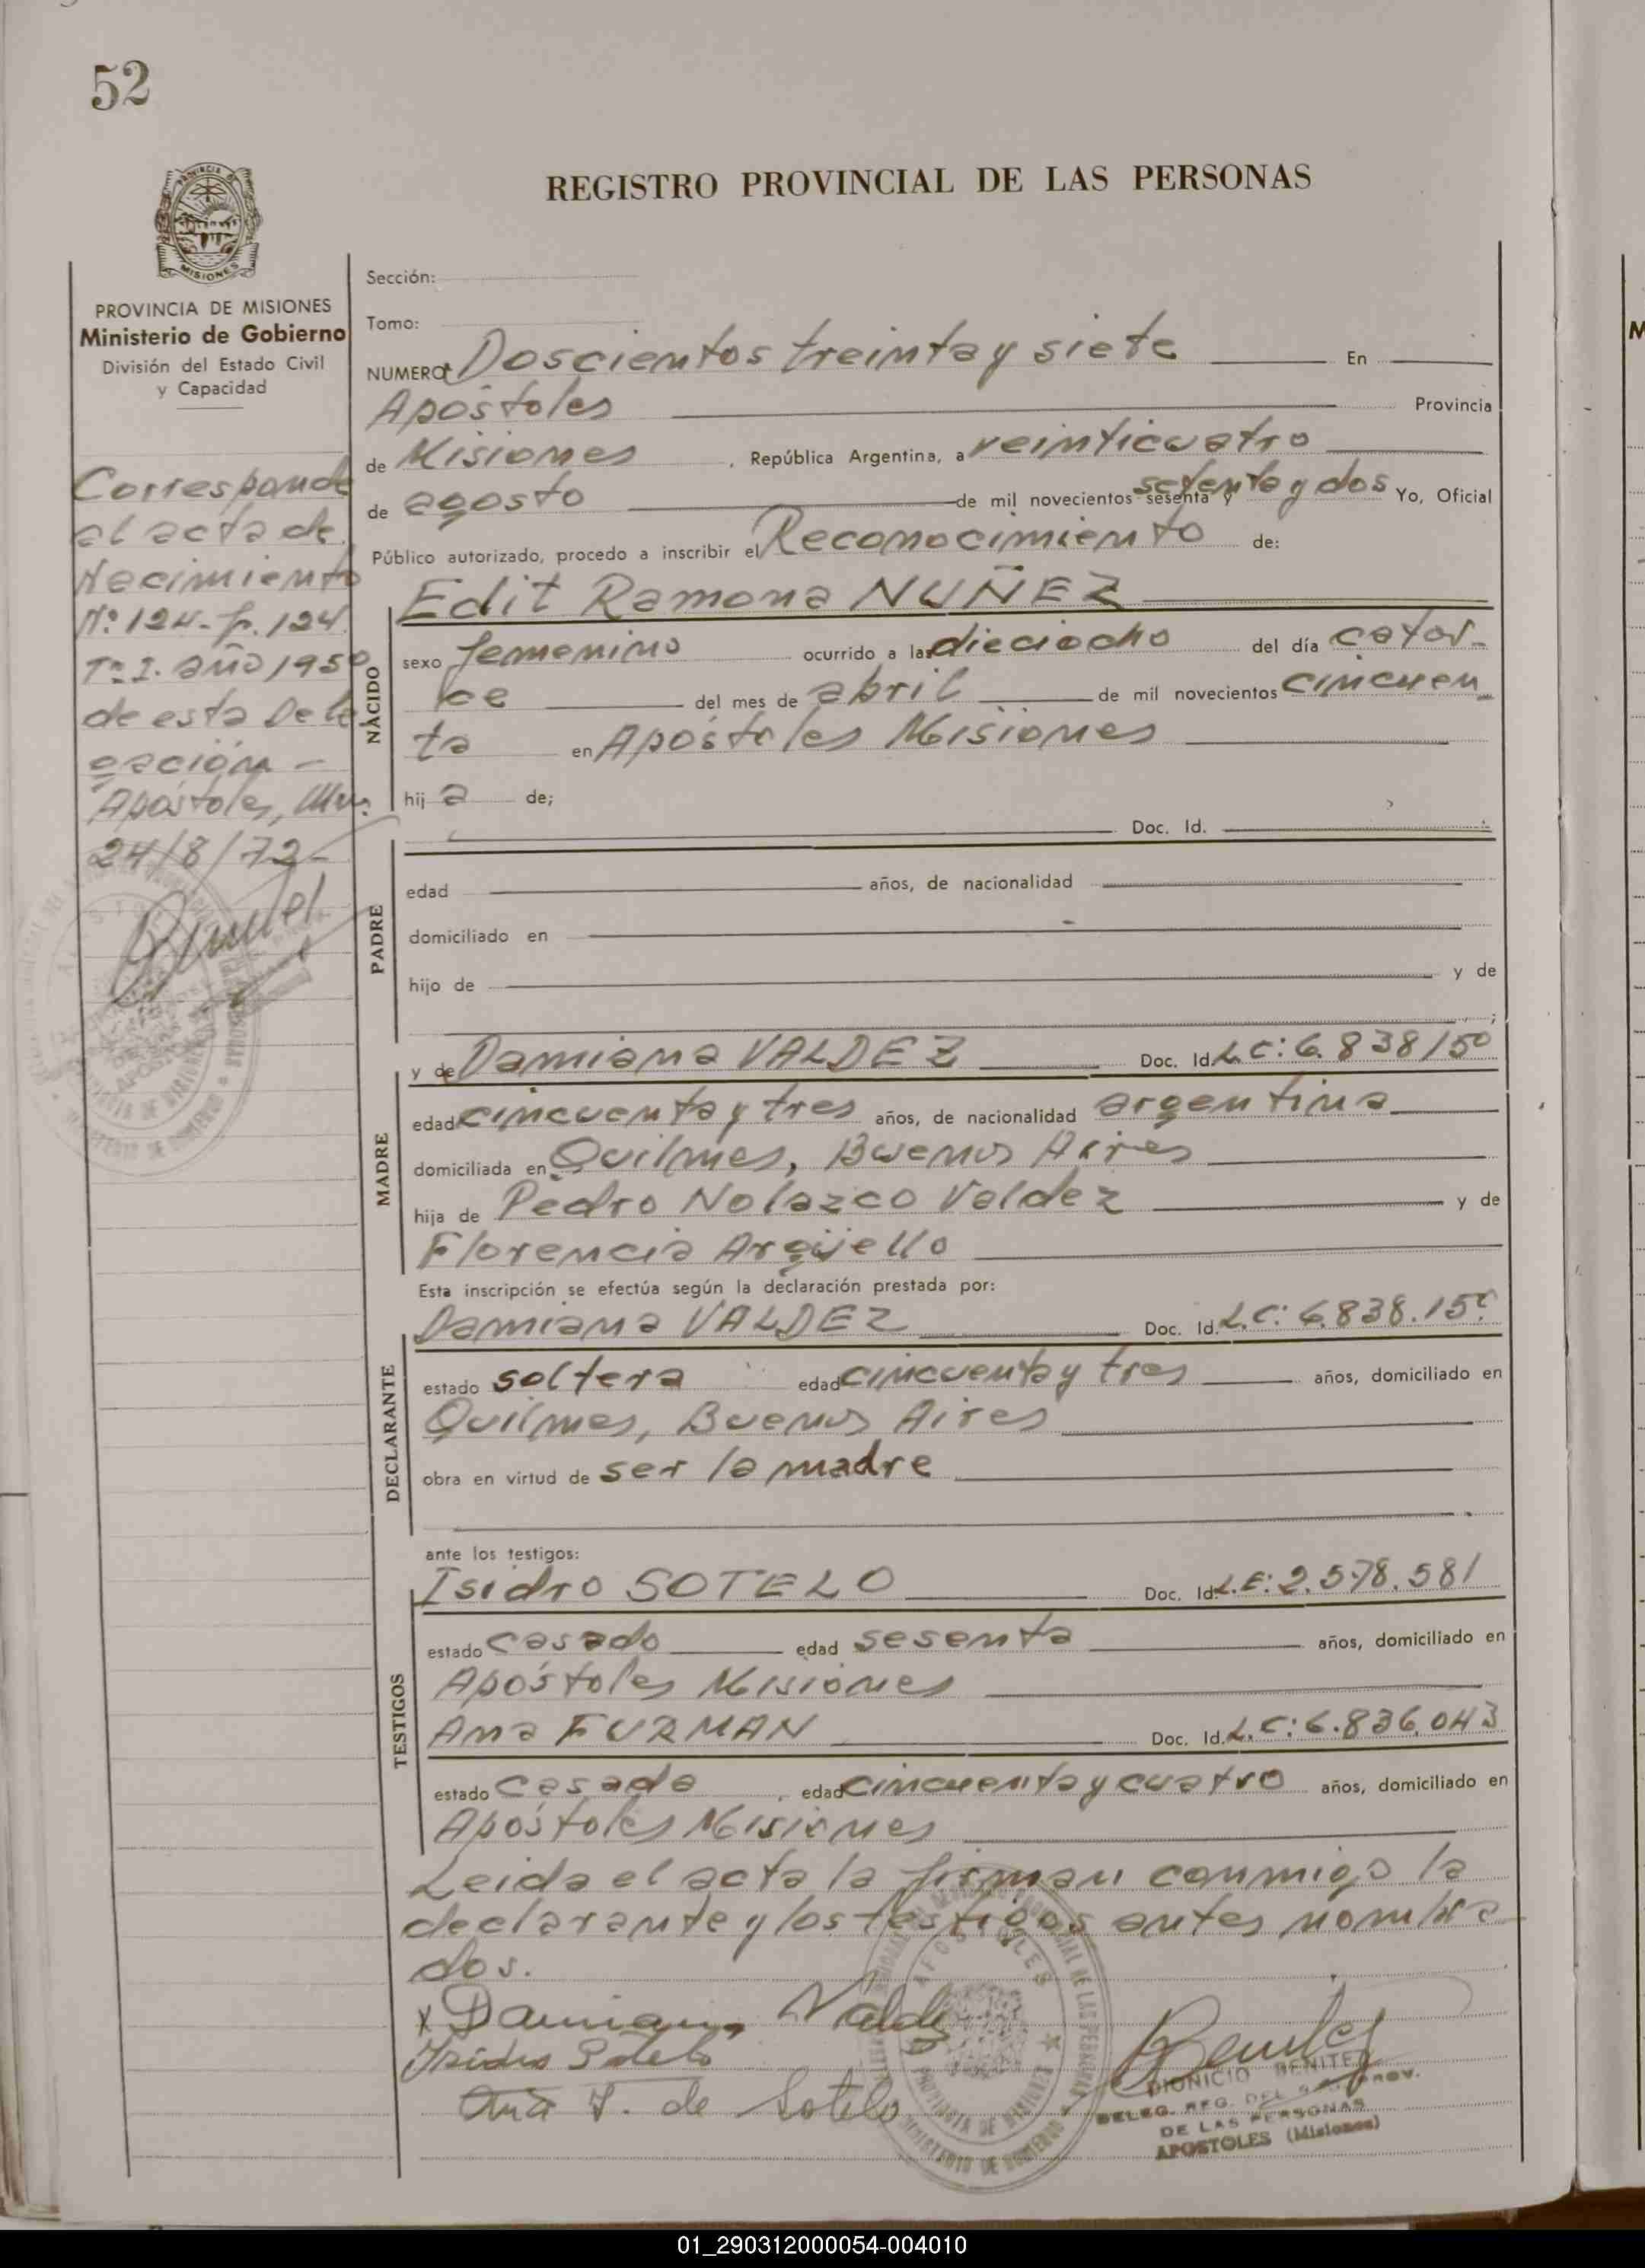 52
REGISTRO PROVINCIAL DE LAS PERSONAS
MISIONES
PROVINCIA DE MISIONES
Ministerio de Gobierno
División del Estado Civil
y Capacidad
Corresponde
al acta de
Nacimiento
Nº 124- f. 124
Tº I. año 1950
de esta Dele
gación -
Apóstoles, Mns.
24/8/72-
Sección:
Tomo:
NUMERO: Doscientos treinta y siete En
Apóstoles Provincia
de Misiones, República Argentina, a veinticuatro
de agosto de mil novecientos sesenta y setenta y dos Yo, Oficial
Público autorizado, procedo a inscribir el Reconocimiento de:
NACIDO
Edit Ramona NUÑEZ
sexo femenino ocurrido a las dieciocho del día cator-
ce del mes de abril de mil novecientos cincuen
ta en Apóstoles Misiones
hij a de;
PADRE
Doc. Id.
edad años, de nacionalidad
domiciliado en
hijo de y de
MADRE
y de Damiana VALDEZ Doc. Id. L.C: 6.838150
edad cincuenta y tres años, de nacionalidad argentina
domiciliada en Quilmes, Buenos Aires
hija de Pedro Nolazco Valdez y de
Florencia Argüello
Esta inscripción se efectúa según la declaración prestada por:
DECLARANTE
Damiana VALDEZ Doc. Id. L.C: 6.838.150
estado soltera edad cincuenta y tres años, domiciliado en
Quilmes, Buenos Aires
obra en virtud de ser la madre
ante los testigos:
TESTIGOS
Isidro SOTELO Doc. Id. L.E: 2.578.581
estado casado edad sesenta años, domiciliado en
Apóstoles Misiones
Ana FURMAN Doc. Id. L.C: 6.836.043
estado casada edad cincuenta y cuatro años, domiciliado en
Apóstoles Misiones
Leida el acta la firman conmigo la
declarante y los testigos antes nombra
dos.
x Damiana Valdez
Isidro Sotelo
Ana F. de Sotelo
Benitez
DIONICIO BENITEZ
DELEG. REG. DEL PROV.
DE LAS PERSONAS
APOSTOLES (Misiones)
01_290312000054-004010